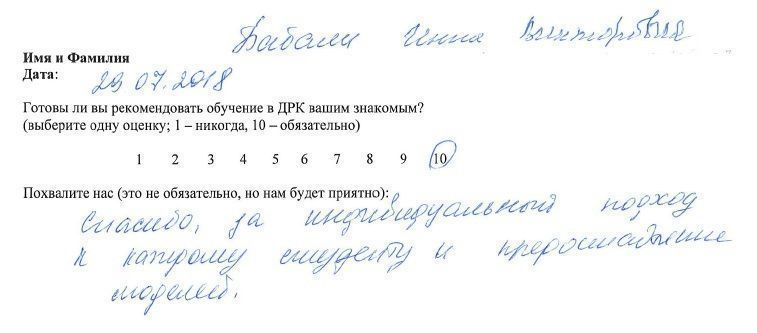 Бабали Инна Викторовна
Имя и Фамилия
Дата: 29 07.2018
Готовы ли вы рекомендовать обучение в ДРК вашим знакомым?
(выберите одну оценку; 1 – никогда, 10 – обязательно)
1 2 3 4 5 6 7 8 9 10
Похвалите нас (это не обязательно, но нам будет приятно):
Спасибо, за индивидуальный подход
к каждому студенту и предоставление
моделей.